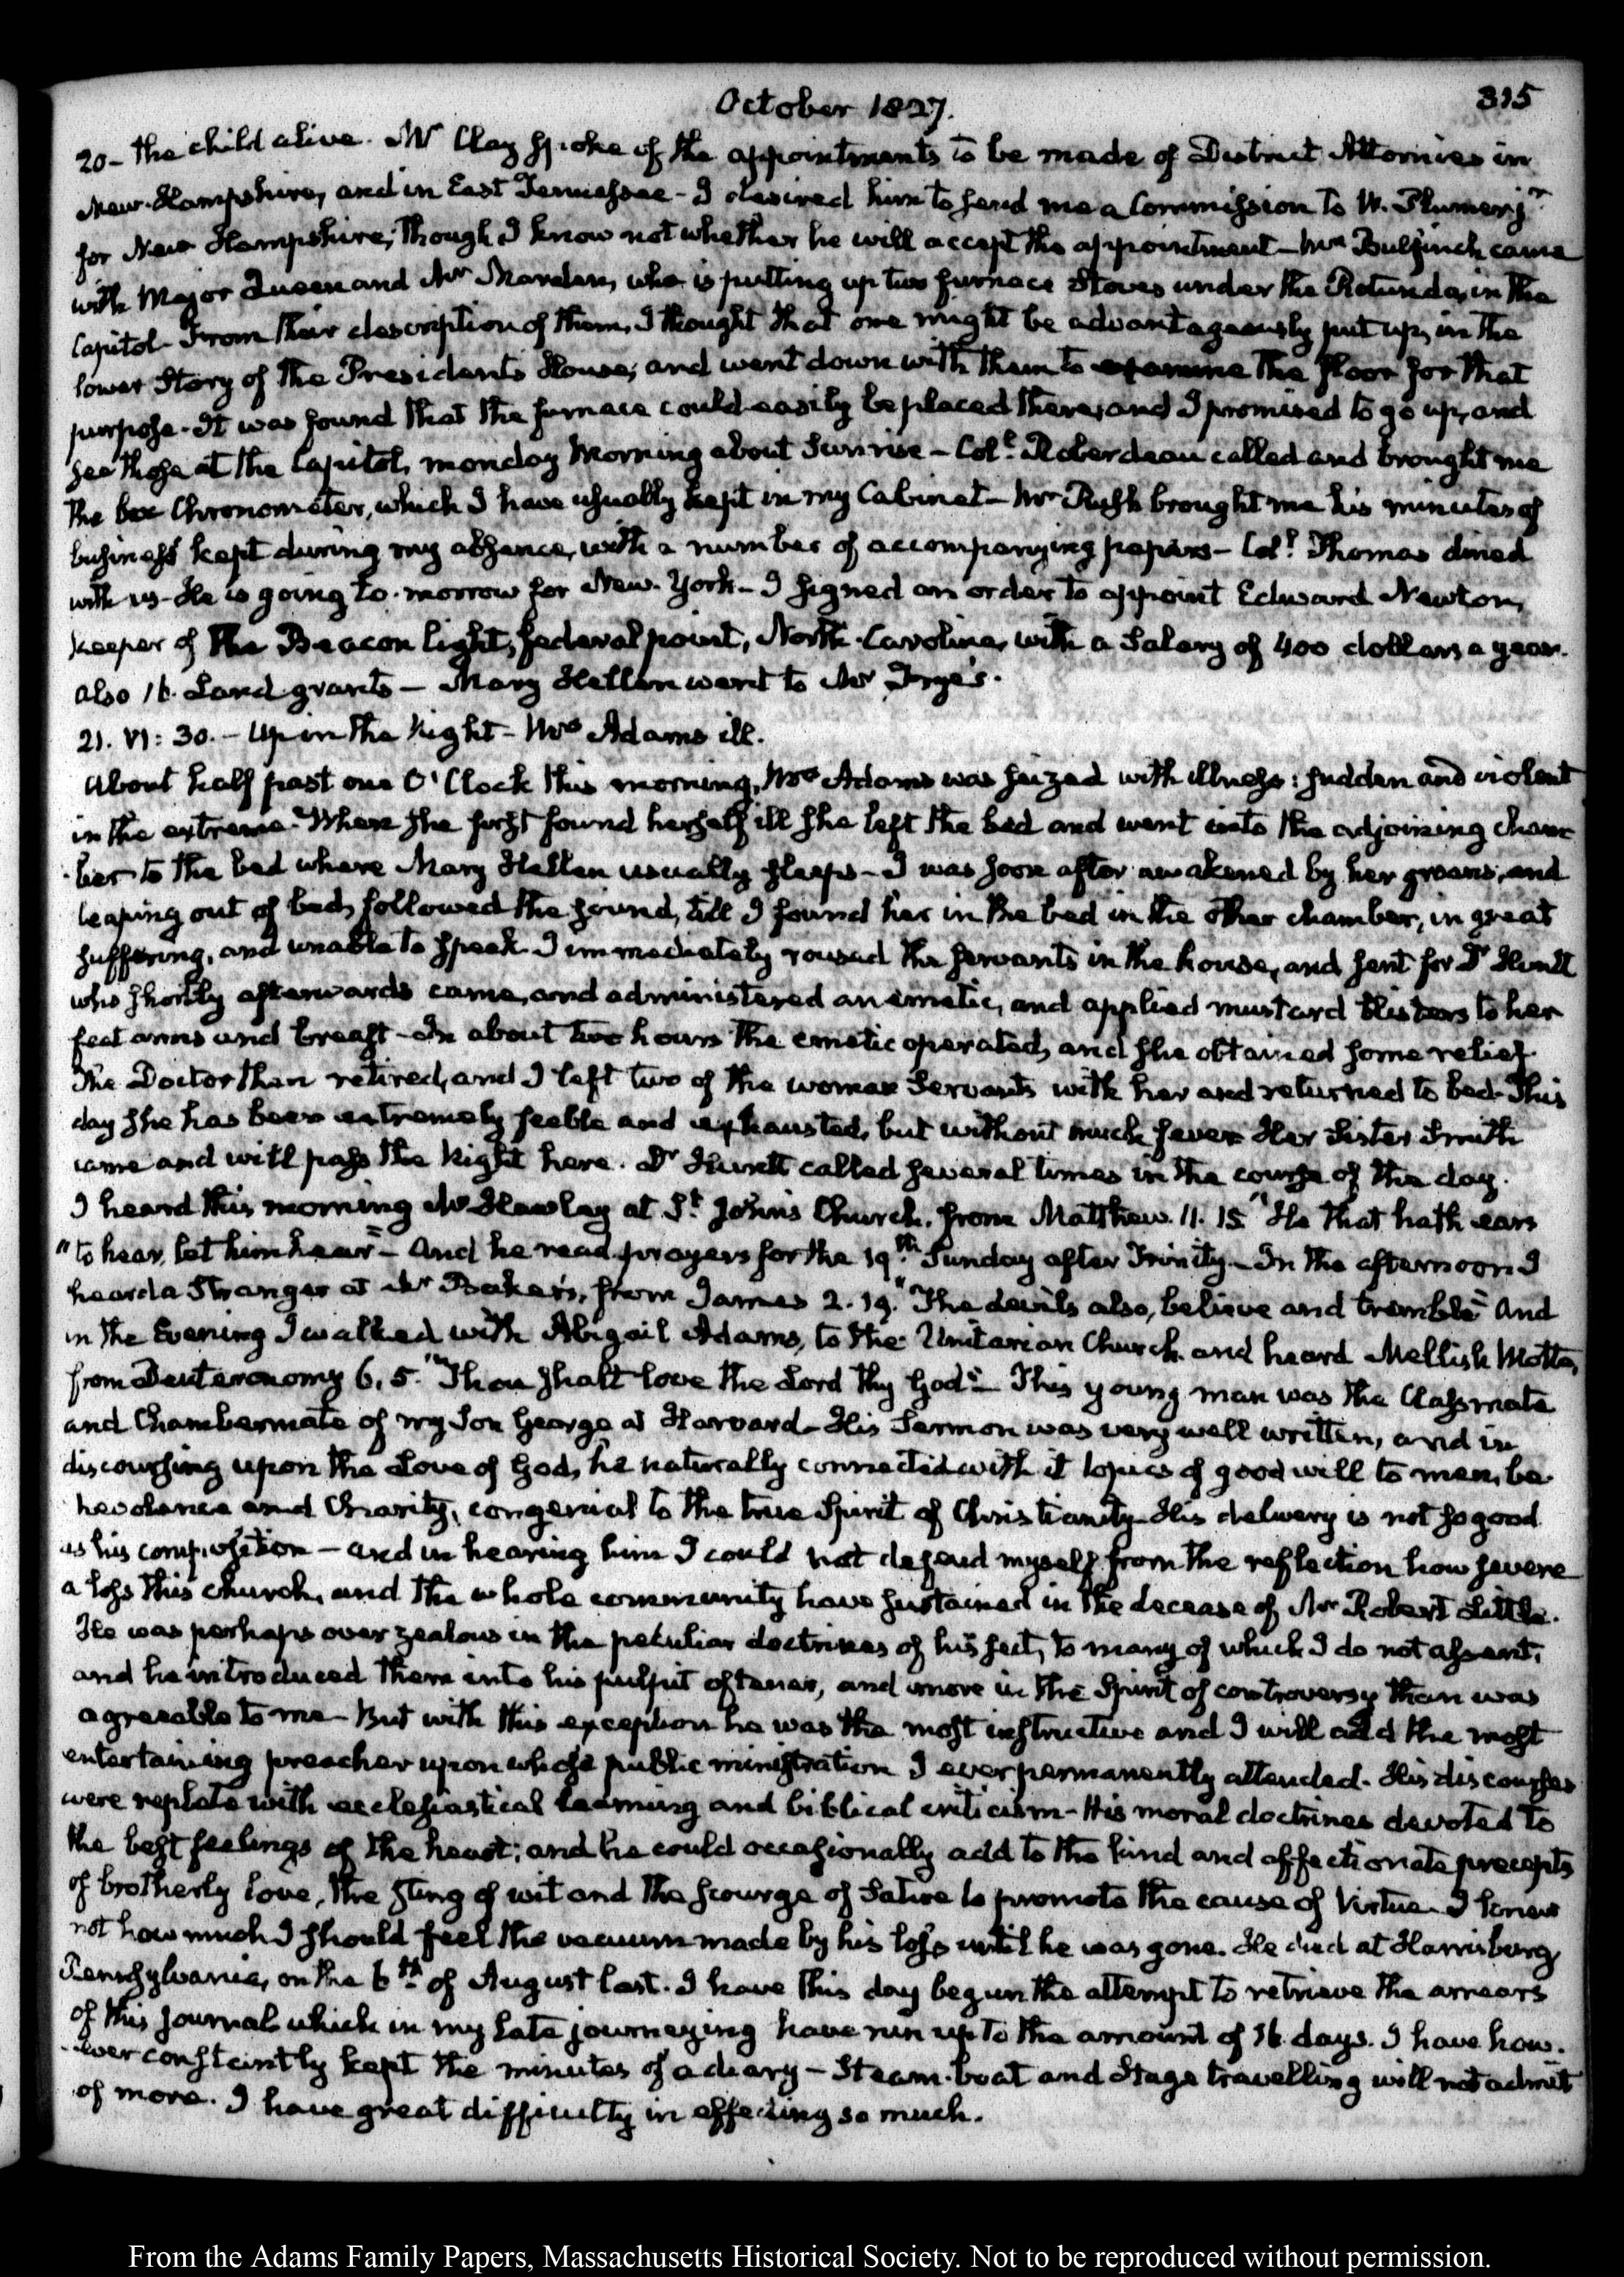 October 1827.
315
20- the child alive. Mr Clay spoke of the appointments to be made of District Attornies in
New-Hampshire, and in East Tennessee - I desired him to send me a Commission to W. Plumer jr
for New Hampshire, though I know not whether he will accept the appointment - Mr Bulfinch came
with Major and Mr who is putting up two furnace Stoves under the Rotunda, in the
Capitol - From their description of them, I thought that one might be advantageously put up, in the
lower Story of the Presidents House, and went down with them to examine the floor for that
purpose - It was found that the furnace could easily be placed there, and I promised to go up, and
see those at the Capitol, monday Morning about Sunrise - Coll. Roberdeau called and brought me
the box Chronometer, which I have usually kept in my Cabinet - Mr Rush brought me his minutes of
business kept during my absence, with a number of accompanying papers - Coll. Thomas dined
with us - He is going to-morrow for New-York - I signed an order to appoint Edward Newton,
keeper of the Beacon light, federal point, North-Carolina, with a Salary of 400 dollars a year.
also 16. Land grants - Mary Hellen went to Mr Frye's.
21. VI: 30. - Up in the Night - Mrs Adams ill.
About half past one O'Clock this morning, Mrs Adams was seized with illness: sudden and violent
in the extreme. When she first found herself ill she left the bed and went into the adjoining cham-
ber to the bed where Mary Hellen usually sleeps - I was soon after awakened by her groans, and
leaping out of bed, followed the sound, till I found her in the bed in the other chamber, in great
suffering, and unable to speak. I immediately roused the servants in the house, and sent for Dr Huntt
who shortly afterwards came, and administered an emetic, and applied mustard blisters to her
feet arms and breast - In about two hours the emetic operated, and she obtained some relief.
The Doctor then retired, and I left two of the woman Servants with her and returned to bed - This
day she has been extremely feeble and exhausted, but without much fever. Her Sister Smith
came and will pass the Night here. Dr Huntt called several times in the course of the day.
I heard this morning Mr Hawley at St. John's Church, from Matthew 11. 15. "He that hath ears
"to hear, let him hear" - And he read prayers for the 19th Sunday after Trinity - In the afternoon I
heard a Stranger at Mr Baker's, from James 2. 19. "The devils also, believe and tremble" And
in the Evening I walked with Abigail Adams, to the Unitarian Church and heard Mellish Motte,
from Deuteronomy 6, 5. "Thou shalt love the Lord thy God" - This young man was the Classmate
and Chambermate of my Son George at Harvard - His Sermon was very well written, and in
discoursing upon the Love of God, he naturally connected with it topics of good will to men, be-
nevolence and Charity, congenial to the true Spirit of Christianity - His delivery is not so good
as his composition - and in hearing him I could not defend myself from the reflection how severe
a loss this church, and the whole community have sustained in the decease of Mr Robert Little.
He was perhaps over zealous in the peculiar doctrines of his sect, to many of which I do not assent,
and he introduced them into his pulpit oftener, and more in the Spirit of controversy than was
agreeable to me - But with this exception he was the most instructive and I will add the most
entertaining preacher upon whose public ministration I ever permanently attended. His discourses
were replete with ecclesiastical learning and biblical criticism - His moral doctrines devoted to
the best feelings of the heart; and he could occasionally add to the kind and affectionate precepts
of brotherly love, the sting of wit and the scourge of Satire to promote the cause of Virtue. I knew
not how much I should feel the vacuum made by his loss until he was gone. He died at Harrisburg,
Pennsylvania, on the 6th of August last. I have this day begun the attempt to retrieve the arrears
of this journal which in my late journeying have run up to the amount of 16 days. I have how-
ever constantly kept the minutes of a diary - Steam-boat and Stage travelling will not admit
of more. I have great difficulty in effecting so much.
From the Adams Family Papers, Massachusetts Historical Society. Not to be reproduced without permission.